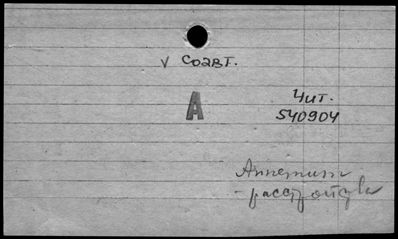 v соавт.
A
Чит.
540904
Аппетит
- расстройства